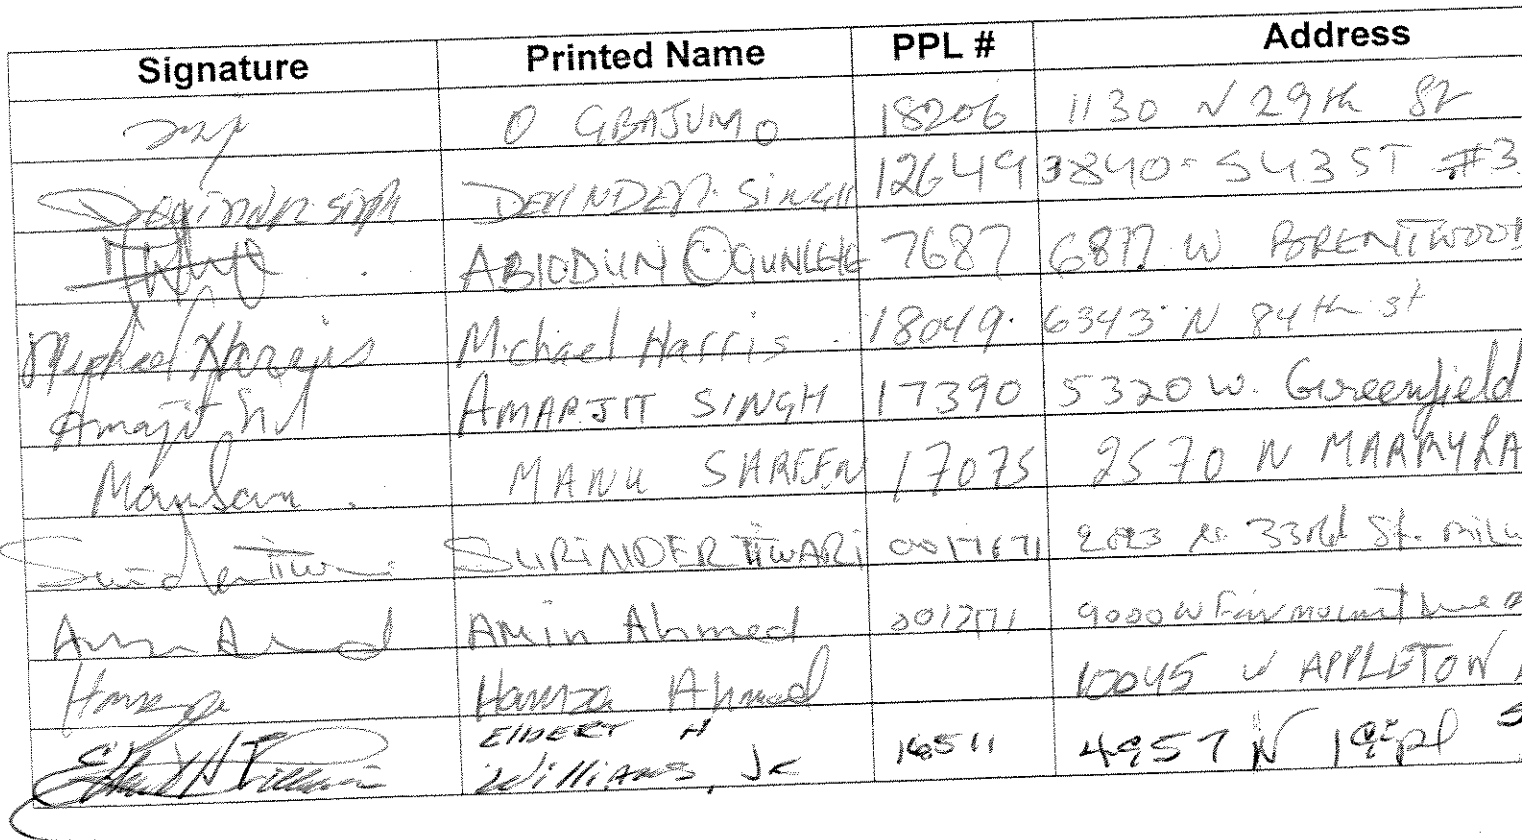 Signature Printed Name PPL # Address
O GBAJUMO 18206 1130 N 29th St
Devinder Singh DEVINDER SINGH 12649 3840 - S 43 ST #3
ABIODUN OGUNLEYE 7687 6877 W BRENTWOOD
Michael Harris Michael Harris 18049 6343 N 84th st
Amarjit AMARJIT SINGH 17390 5320 W. Greenfield
MANU SHAREEN 17075 2570 N MARRYLA
SURINDER TIWARI 33rd St. Milw
Amin Ahmed 9000 W Fairmount Ave
Hamza Hamza Ahmed 10045 W APPLETON
ElbERT H
Williams, Jr 16511 4957 N 19th pl